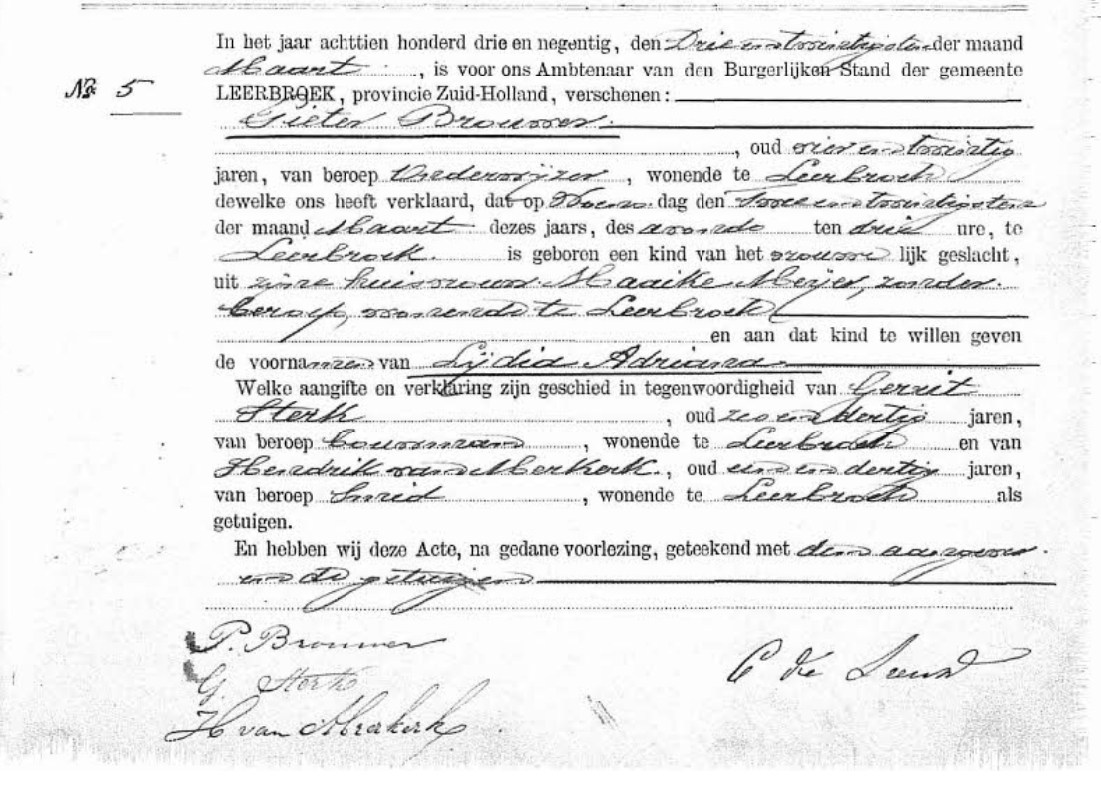 In het jaar achttien honderd drie en negentig, den Drie en twintigsten der maand
Maart, is voor ons Ambtenaar van den Burgerlijken Stand der gemeente
No 5
LEERBROEK, provincie Zuid-Holland, verschenen:
Pieter Brouwer.
, oud vier en twintig
jaren, van beroep Onderwijzer, wonende te Leerbroek
dewelke ons heeft verklaard, dat op Woens dag den Twee en twintigsten
der maand Maart dezes jaars, des avonds ten drie ure, te
Leerbroek. is geboren een kind van het vrouwe lijk geslacht,
uit zijne huisvrouw Maaike Meijer, zonder
beroep, wonende te Leerbroek
en aan dat kind te willen geven
de voornamen van Lijdia Adriana
Welke aangifte en verklaring zijn geschied in tegenwoordigheid van Gerrit
Sterk, oud zes en dertig jaren,
van beroep bouwman, wonende te Leerbroek en van
Hendrik van Merkerk, oud een en dertig jaren,
van beroep Smid, wonende te Leerbroek als
getuigen.
En hebben wij deze Acte, na gedane voorlezing, geteekend met den aangever
en de getuigen
P. Brouwer
G. Sterk
C de Leeuw
H van Merkerk